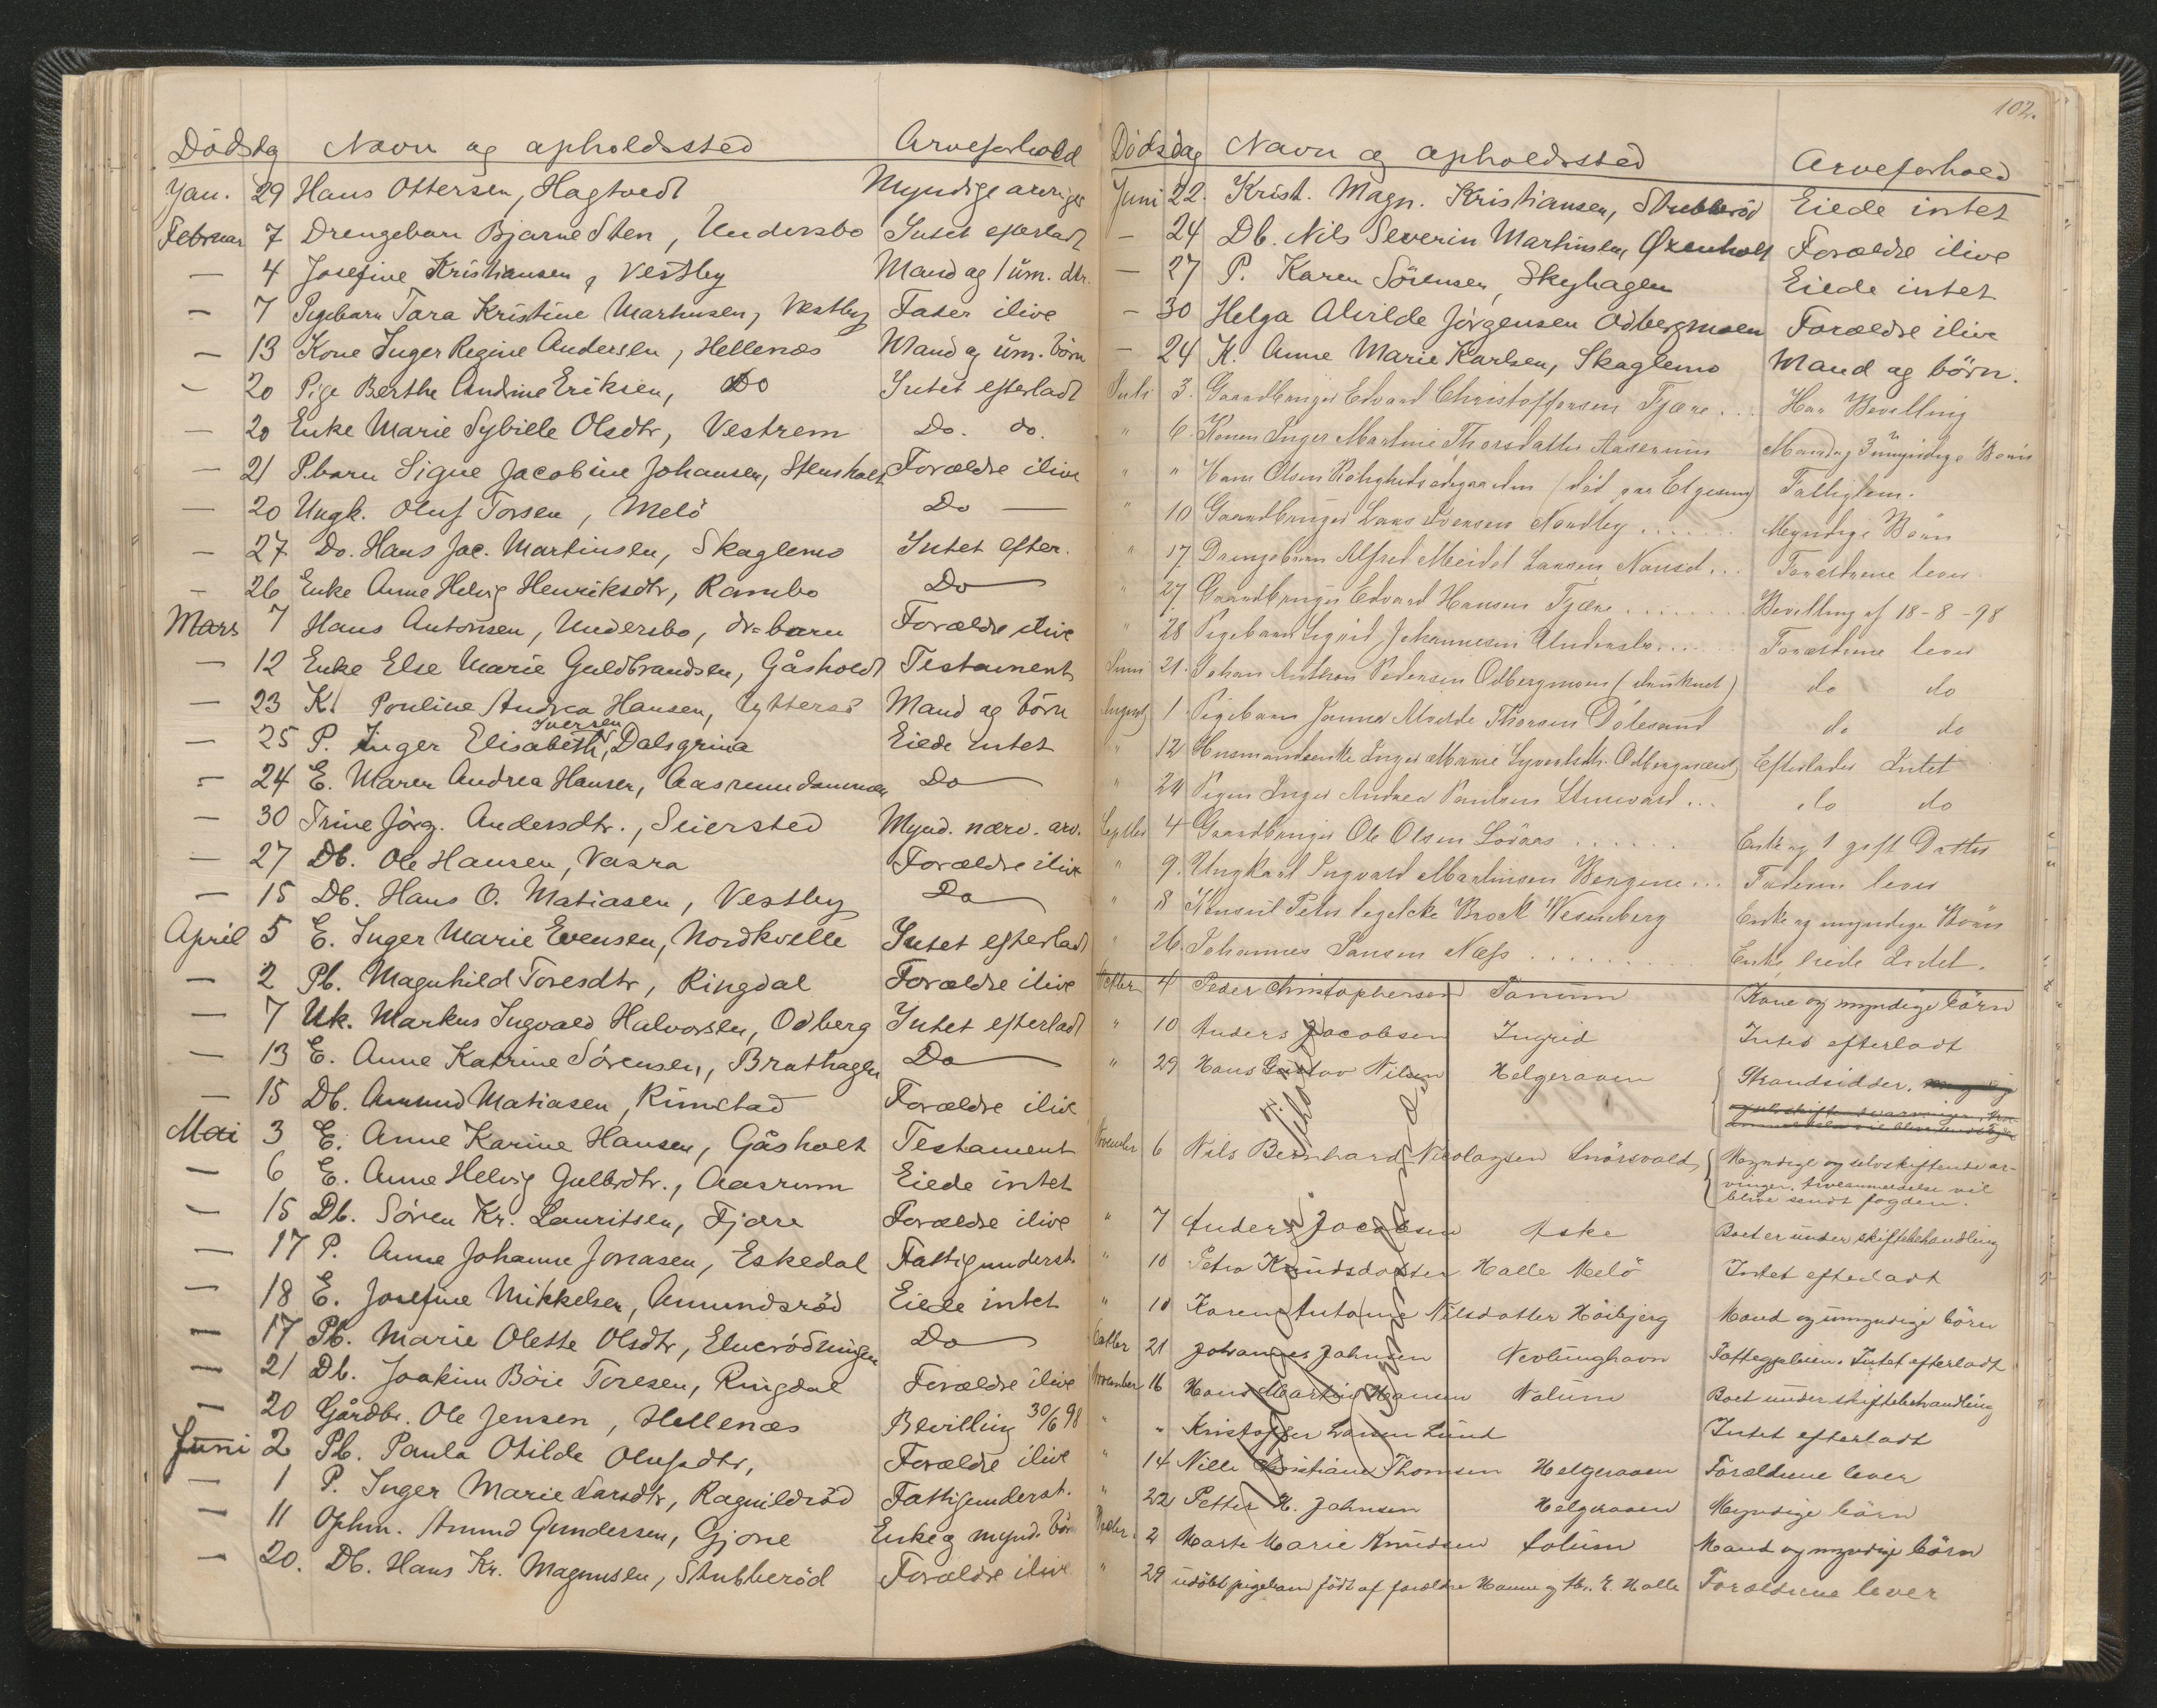 Dödsdag Navn og opholdssted Arveforhold
Jan. 29 Hans Ottersen, Hagtvedt Myndige arvinger
Februar 7 Drengebarn Bjarne Sten, Undersbo Intet efterladt
— 4 Josefine Kristiansen, Vestby Mand og 1 um. dtr.
— 7 Pigebarn Tara Kristine Martinsen, Vestby Fader ilive
— 13 Kone Inger Regine Andersen, Hellenæs Mand og um. börn
— 20 Pige Berthe Andrine Eriksen, Do Intet efterladt
— 20 Enke Marie Sybille Olsdtr, Vestrem Do. do.
— 21 P.barn Signe Jacobine Johansen, Stensholt Forældre ilive
— 20 Ungk. Oluf Torsen, Melö Do —
— 27 Do. Hans Jac. Martinsen, Skaglemo Intet efter.
— 26 Enke Anne Helvig Henriksdtr, Rambo Do —
Mars 7 Hans Antonsen, Undersbo, dr=barn Forældre ilive
— 12 Enke Else Marie Guldbrandsen, Gåsholdt Testament
— 23 K. Pouline Andrea Hansen, Yttersö Mand og börn
Iversen
— 25 P. Inger Elisabeth, Dalsgrina Eiede intet
— 24 E. Maren Andrea Hansen, Aasrumdammen Do —
— 30 Trine Jörg. Andersdtr., Seiersted Mynd. nærv. arv.
— 27 Db. Ole Hansen, Vasra Forældre ilive
— 15 Db. Hans O. Matiasen, Vestby Do —
April 5 E. Inger Marie Evensen, Nordkvelle Intet efterladt
— 2 Pb. Magnhild Toresdtr, Ringdal Forældre ilive
— 7 Uk. Markus Ingvald Halvorsen, Odberg Intet efterladt
— 13 E. Anne Katrine Sörensen, Brathagen Do —
— 15 Db. Amund Matiasen, Rimstad Forældre ilive
Mai 3 E. Anne Karine Hansen, Gåsholt Testament
— 6 E. Anne Helvig Gulbrdtr., Aasrum Eiede intet
— 15 Db. Sören Kr. Lauritsen, Fjære Forældre ilive
— 17 P. Anne Johanne Jonasen, Eskedal Fattigunderst.
— 18 E. Josefine Mikkelsen, Amundsröd Eiede intet
— 17 Pb. Marie Olette Olsdtr, Do —
— 21 Db. Joakim Böie Toresen, Ringdal Forældre ilive
— 20 Gårdbr. Ole Jensen, Hellenæs Bevilling 30/6 98
Juni 2 Pb. Paula Otilde Olufsdtr, Forældre ilive
— 1 P. Inger Marie Larsdtr, Ragnildröd Fattigunderst.
— 11 Ophm. Amund Gundersen, Gjone Enke og mynd. börn
— 20. Db. Hans Kr. Magnusen, Stubberöd Forældre ilive
102.
Dödsdag Navn og opholdssted Arveforhold
Juni 22. Krist. Magn. Kristiansen, Stubberöd Eiede intet
— 24 Db. Nils Severin Martinsen, Øxenholt Forældre ilive
— 27 P. Karen Sörensen, Skyhagen Eiede intet
— 30 Helga Alvilde Jörgensen Odbergmoen Forældre ilive
— 24 K. Anne Marie Karlsen, Skaglemo Mand og börn.
Juli 3. Gaardbruger Edvard Christoffersen Fjære... Har Bevilling
" 6. Konen Inger Martine Thorsdatter Aaserum Mand og 3 umyndige Börn
" " Hans Olsen Rolighedsodegaarden (död paa Elgesem) Fattiglem.
" 10 Gaardbruger Lars Iversen Nordby ....... Myndige Börn
" 17. Drengebarn Alfred Meidel Larsen Nansd... Forældrene lever
" 27. Gaardbruger Edvard Hansen Fjære ....... Bevilling af 18-8-98
" 28 Pigebarn Sigrid Johannesen Undersbo..... Forældrene lever
Juni 21. Johan Anthon Pedersen Odbergmoen (druknet) do do
August 1. Pigebarn Janna Alvilde Thorsen Dölesand do do
" 12 Husmandsenke Inger Marie Syvertsdtr. Efterlader Intet
" 24 Pigen Inger Andrea Paulsen ... do do
Septbr 4 Gaardbruger Ole Olsen Löaas ...... Enke og 1 gift Datter
" 9. Ungkarl Ingvald Martinsen Bergene... Faderen lever
" 8 Konsul Peter Segelcke Brock Wesenberg Enke og myndige Börn
" 26. Johannes Jansen Næss ......... Enke, eiede Intet.
Octbr 4 Peder Christophersen Tanum Kone og myndige börn
" 10 Anders Jacobsen Ingrid Intet efterladt
" 29 Hans Gustav Nilsen Helgeraaen Strandsidder.
November 6 Nils Bernhard Nicolaysen Snörsvold Myndige og selvskiftende ar-
vinger. Arveanmeldelse vil
blive sendt fogden.
" 7 Anders Jacobsen Aske Boet er under skiftebehandling
" 10 Petra Knudsdatter Halle Melö Intet efterladt
" 10 Karen Antonie Nilsdatter Höibjerg Mand og umyndige börn
Octbr 21 Johannes Johnsen Nevlunghavn Fattigpleien. Intet efterladt
November 16 Hans Martin Hansen Nalum Boet under skiftebehandling
" " Kristoffer Larsen Lund Intet efterladt
" 14 Nille Christiane Thomsen Helgeraaen Forældrene lever
" 22 Petter H. Johnsen Helgeraaen Myndige börn
Decbr. 2 Marte Marie Knudsen Solum Mand og myndige börn
" 29 udöbt pigebarn födt af forældre Hanne og Chr. E. Halle Forældrene lever